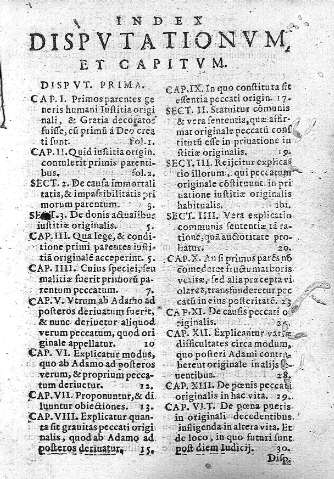 INDEX
DISPVTATIONVM,
ET CAPITVM.
DISPVT. PRIMA.
CAP. I. Primos parentes ge
neris humani Iustitia origi
nali, & Gratia decoratos
fuisse, cũ primũ à Deo crea
ti sunt. fol.1.
CAP. II. Quid iustitia origin.
contulerit primis parenti-
bus. fol.2.
SECT. 2. De causa immortali
tatis, & impassibilitatis pri
morum parentum. 3.
SECT. 3. De donis actualibus
iustitiæ originalis. 5.
CAP. III. Qua lege, & condi-
tione primi parentes iusti-
tiã originalẽ acceperint. 5.
CAP. IIII. Cuius speciei, seu
malitiæ fuerit primorũ pa-
rentum peccatum. 7.
CAP. V. Verum ab Adamo ad
posteros deriuatum fuerit,
& nunc deriuetur aliquod
verum peccatum, quod ori
ginale appellatur. 10
CAP. VI. Explicatur modus,
quo ab Adamo ad posteros
verum, & proprium pecca-
tum deriuetur. 12.
CAP. VII. Proponuntur, & di
luuntur obiectiones. 13.
CAP. VIII. Explicatur quan-
ta sit grauitas peccati origi
nalis, quod ab Adamo ad
posteros deriuatur. 15.
CAP. IX. In quo constituta sit
essentia peccati origin. 17.
SECT. II. Statuitur commũis
& vera sententia, quæ affir-
mat originale peccatũ consi
tuti esse in priuatione iu
stitiæ originalis. 19.
SECT. III. Reijcitur explicas
tio illorum, qui peccatum
originale cõstituunt in pri
uatione iustitiæ originalis
habitualis. ibi.
SECT. IIII. Vera explicatio
communis sententiæ tã ra-
tione, quã auctoritate pro-
batur. 20.
CAP. X. An si primus parẽs nõ
comederet fructum arboris
vetitæ, sed alia præcepta vi
olaret, transfunderetur pec
catũ in eius posteritatẽ. 23
CAP. XI. De causis peccati o-
riginalis. 25.
CAP. XII. Explicantur variæ
difficultates circa modum,
quo posteri Adami contra-
herent originale in alijs
euentibus. 28.
CAP. XIII. De pœnis peccati
originalis in hac vita.
De pœna pueris
in originali decedentibus
infligenda in altera vita. Et
de loco, in quo futuri sunt
post diem Iudicij. 30.
Disp.